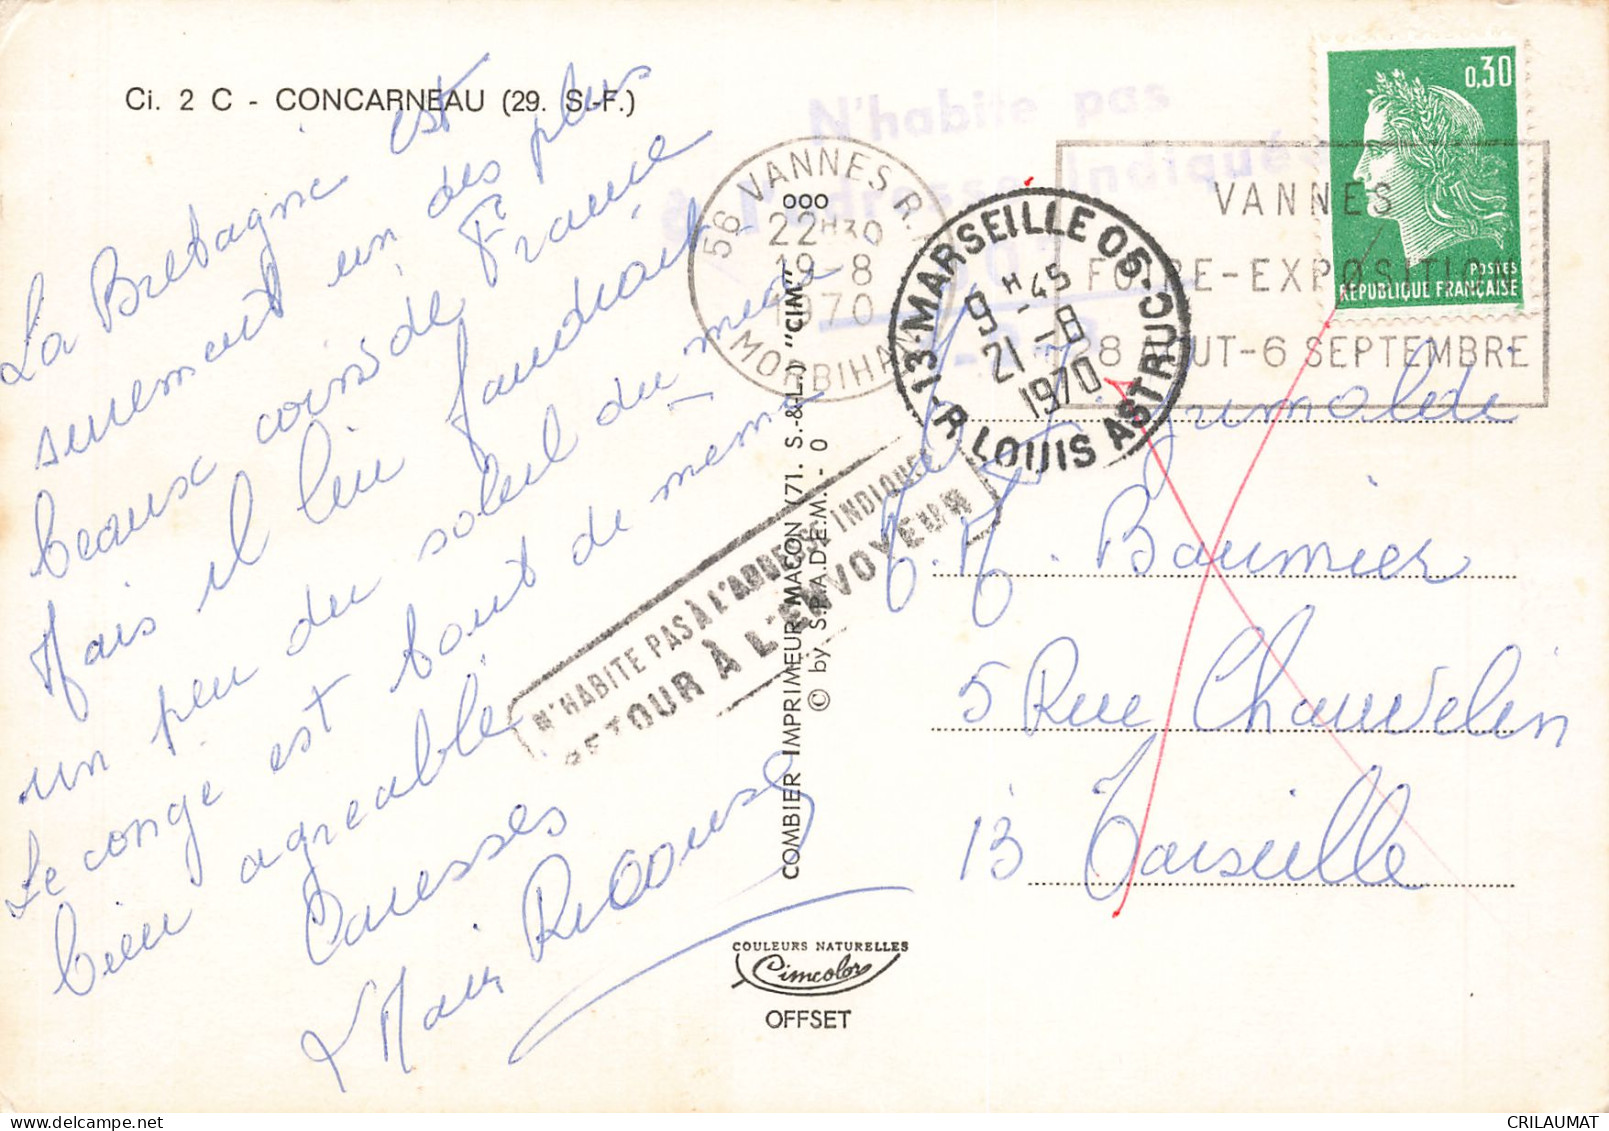 Ci. 2 C - CONCARNEAU (29. S.-F.)
La Bretagne est
surement un des plus
beaux coins de France
Mais il lui faudrait
un peu du soleil du meme
Le conge est tout de meme
bien agreable
Caresses
N'habite pas
à l'adresse indiquée
56 VANNES R.P.
22H30
19-8
1970
MORBIHAN
13-MARSEILLE 05
9H45
21-8
1970
R. LOUIS ASTRUC
VANNES
FOIRE-EXPOSITION
28 AOUT-6 SEPTEMBRE
0,30
POSTES
REPUBLIQUE FRANÇAISE
N'HABITE PAS À L'ADRESSE INDIQUÉE
RETOUR À L'ENVOYEUR
COMBIER IMPRIMEUR MACON (71. S.-&-L.) "CIM"
© by S.P.A.D.E.M. - 0
Baumier
5 Rue Chauvelin
13 Marseille
COULEURS NATURELLES
Cimcolor
OFFSET
CRILAUMAT